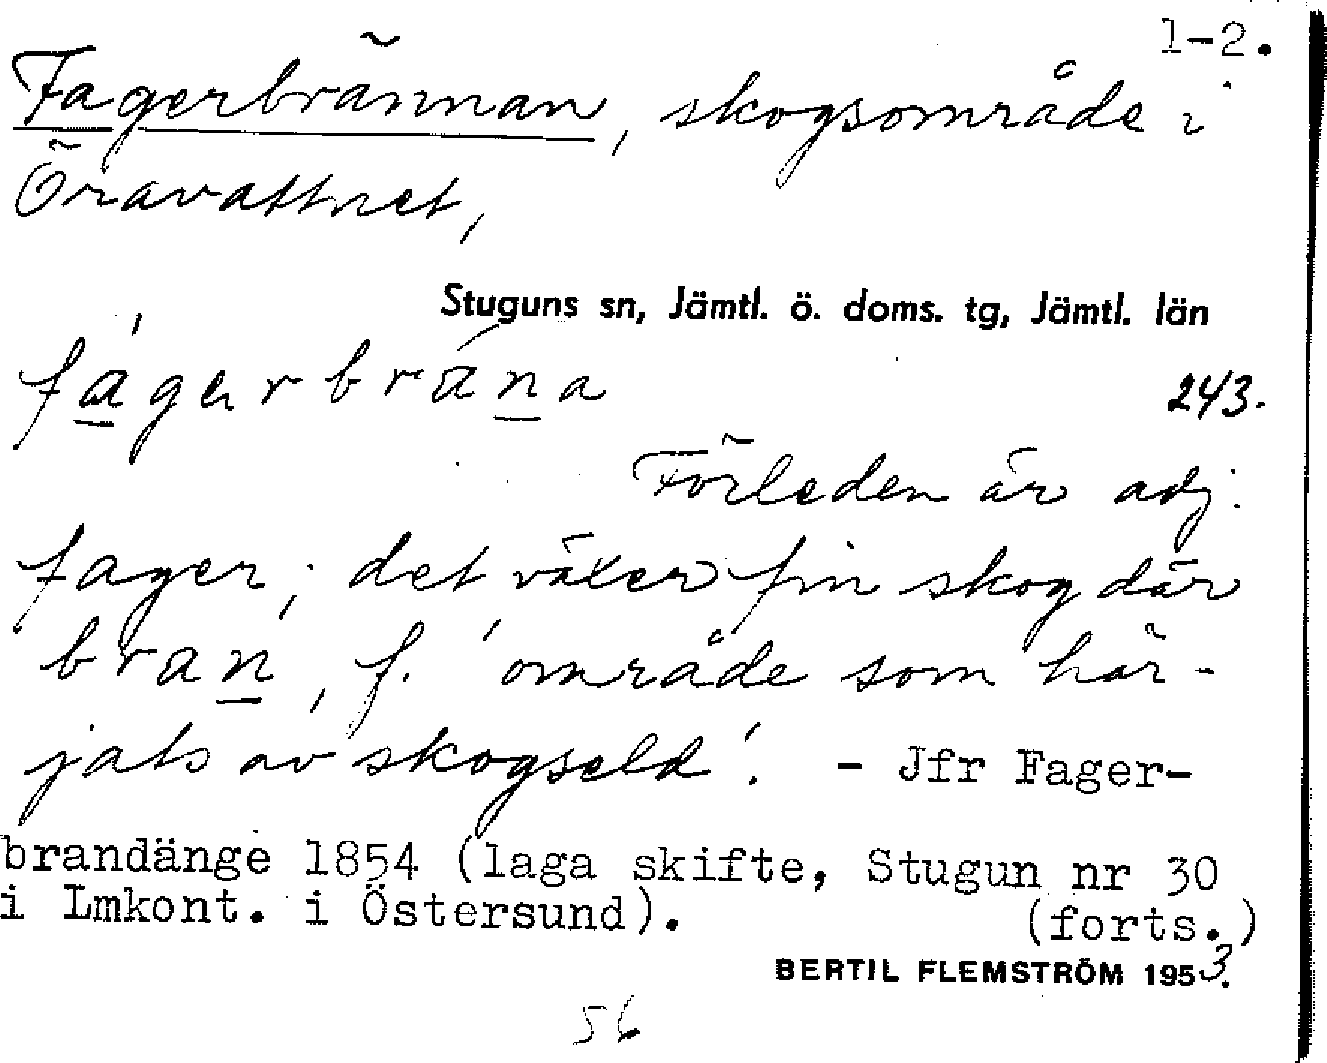 1-2.
Fagerbrännan, skogsområde i
Öravattnet,
Stuguns sn, Jämtl. ö. doms. tg, Jämtl. län
243.
Förleden är adj.
fager; det växer fin skog där
bran, f. 'område som här-
jats av skogseld'. - Jfr Fager-
brandänge 1854 (laga skifte, Stugun nr 30
i Lmkont. i Östersund).
(forts.)
BERTIL FLEMSTRÖM 1953.
56